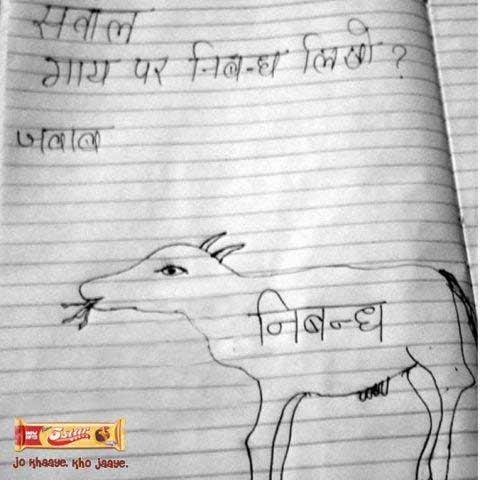 सवाल
गाय पर निबन्ध लिखो?
जवाब
निबन्ध
5Star
jo khaaye. kho jaaye.